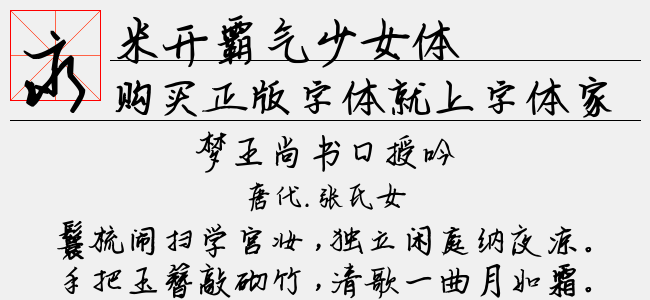 永
米开霸气少女体
购买正版字体就上字体家
梦王尚书口授吟
唐代.张氏女
鬟梳闹扫学宫妆,独立闲庭纳夜凉。
手把玉簪敲砌竹,清歌一曲月如霜。